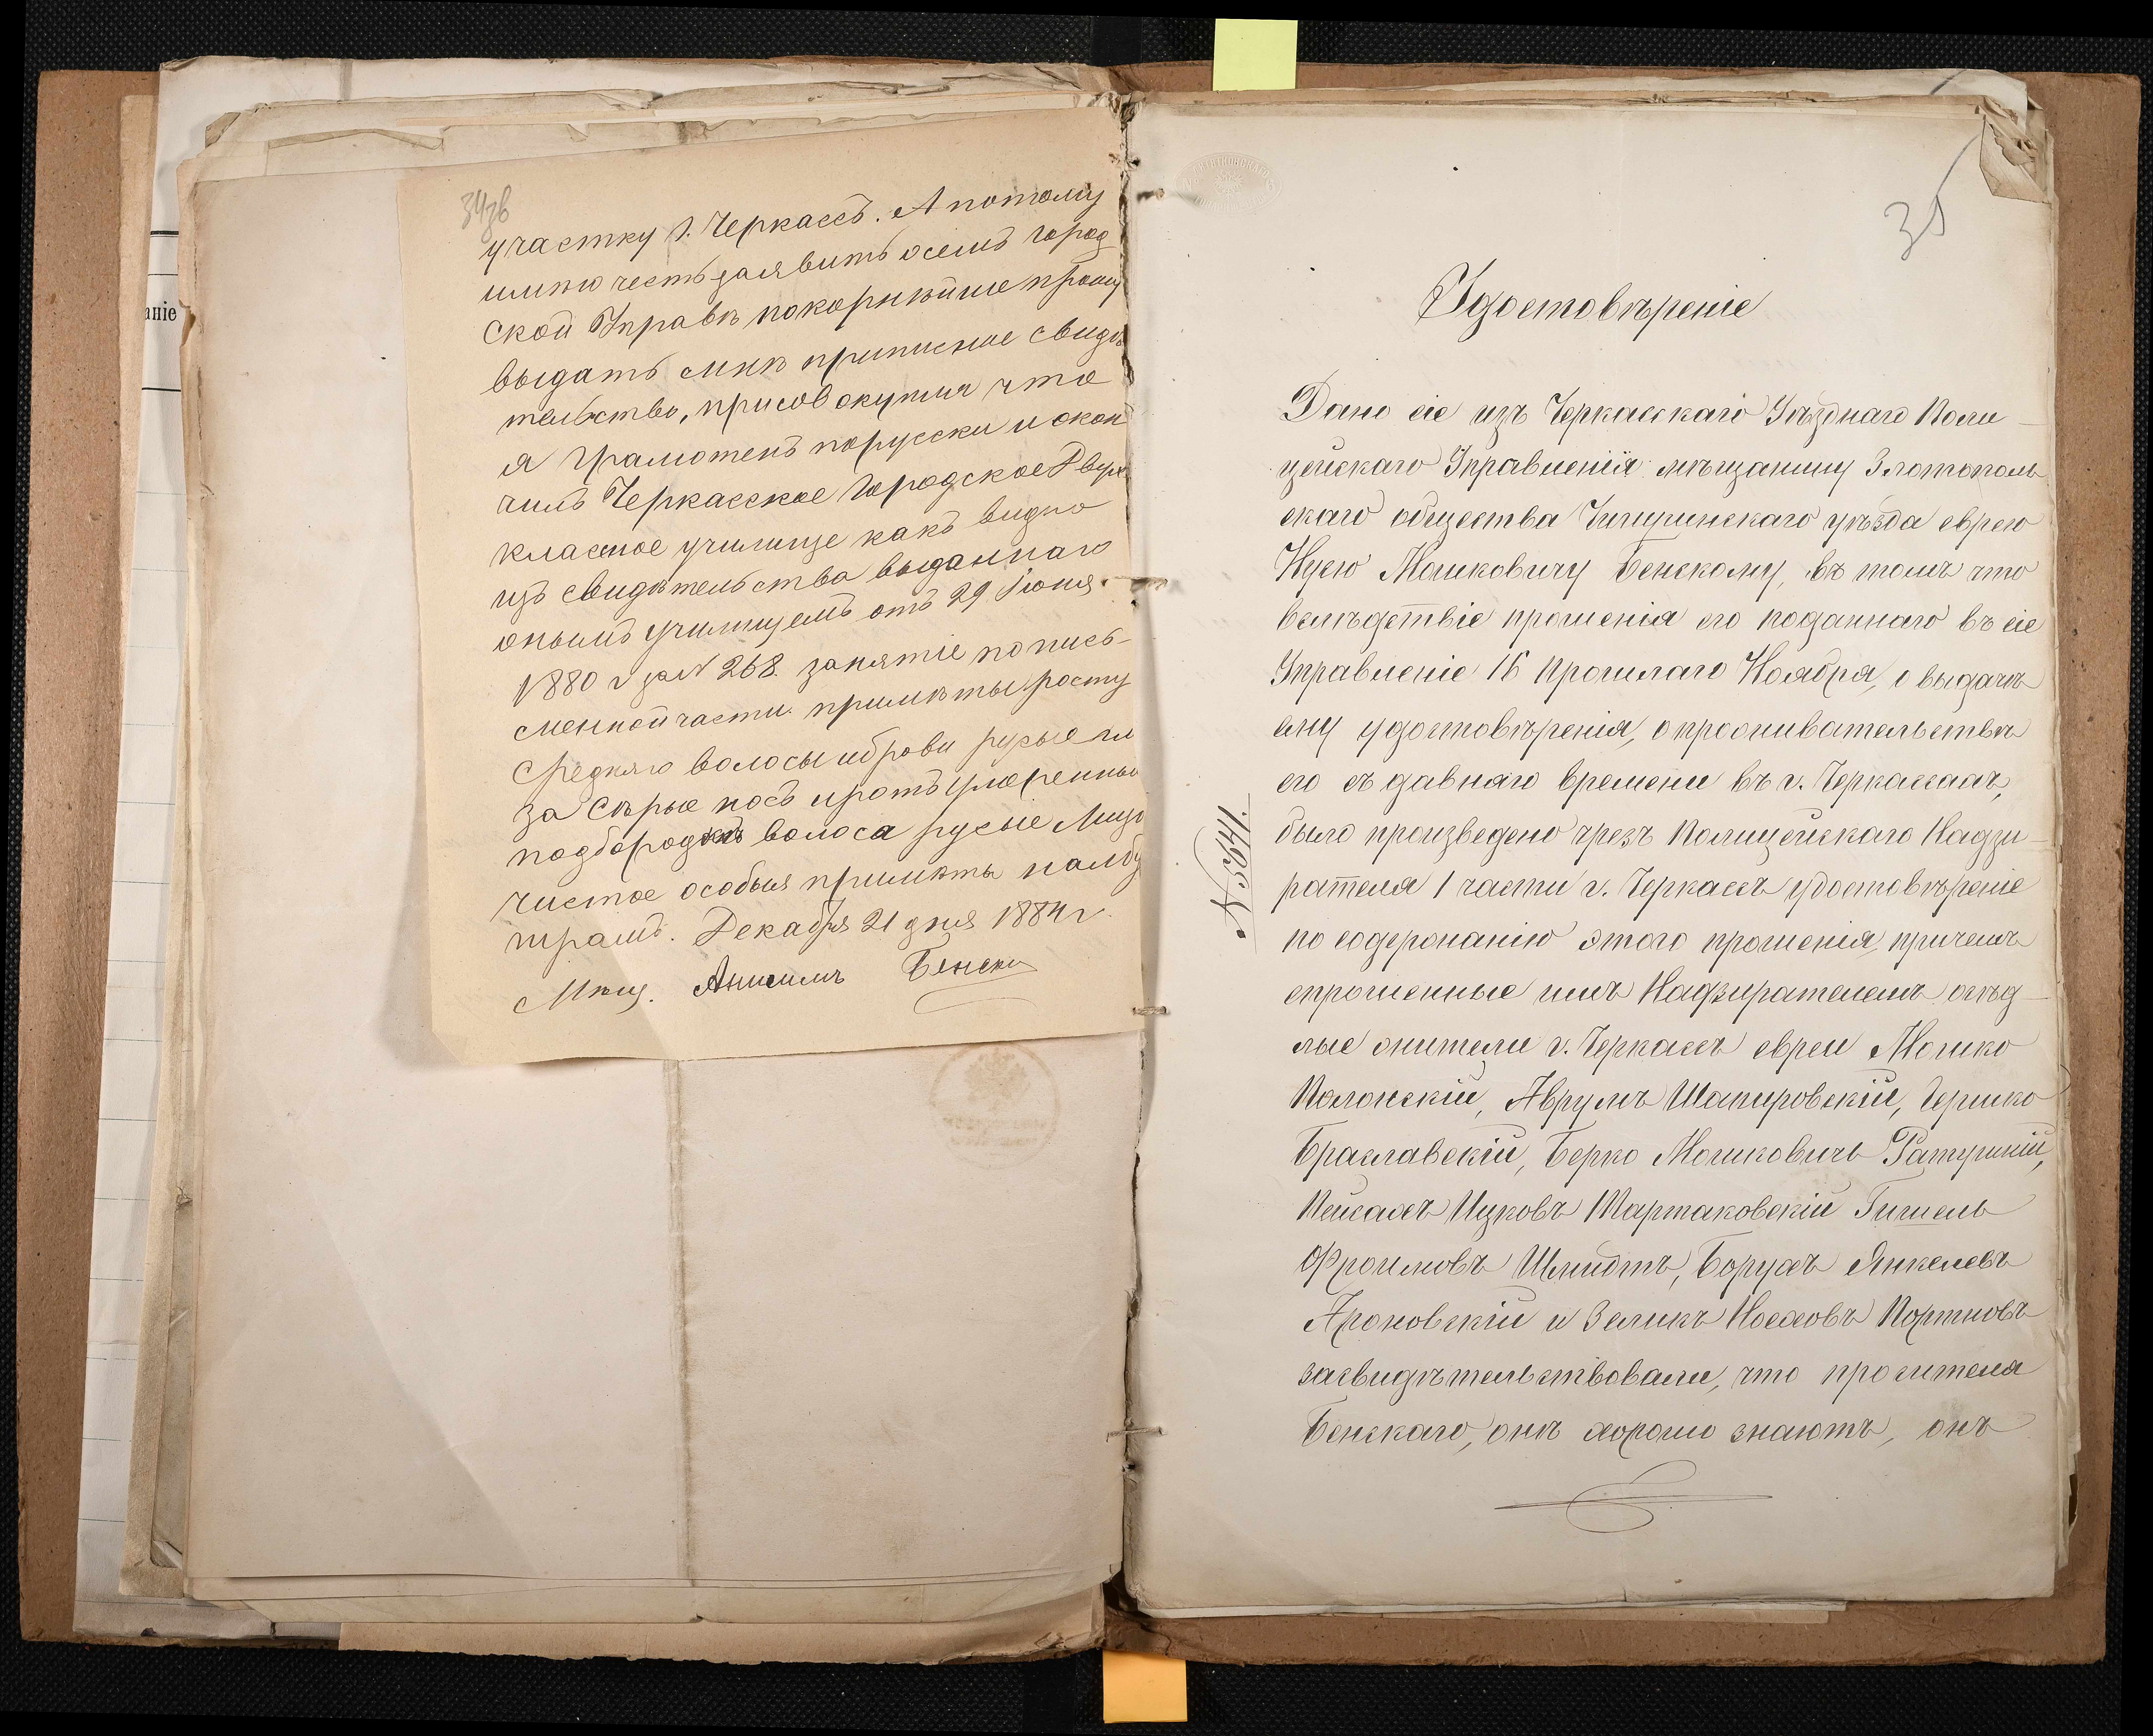 аніе
34зв
участку г. Черкассъ. А потому
имѣю честь заявить о семъ Город
ской Управѣ покорнѣйше прошу
выдать мнѣ приписное свидѣ
тельство, присовокупляя что
я грамотенъ порусски и окон
чилъ Черкасское Городское Двух
классное училище какъ видно
изъ свидѣтельства выданнаго
онымъ училищемъ отъ 29 Іюня
1880 г за N 268. занятіе по пись-
менной части. примѣты: росту
средняго волосы и брови русые гла
за сѣрые носъ и ротъ умеренные
подбородокъ волоса русые Лицо
чистое особыя примѣты на лбу
шрамъ. Декабря 21 дня 1884 г.
Мѣщ. Анисимъ Бенски
35
Удостовѣреніе
Дано сіе изъ Черкасскаго Уѣзднаго Поли-
цейскаго Управленія мѣщанину Златополь
скаго общества Чигиринскаго уѣзда еврею
Нусю Мошковичу Бенскому, въ томъ что
вслѣдствіе прошенія его поданнаго въ сіе
Управленіе 16 прошлаго Ноября, о выдачѣ
ему удостовѣренія, о проживательствѣ
его съ давняго времени въ г. Черкассахъ,
было произведено чрезъ Полицейскаго Надзи-
рателя 1 части г. Черкассъ удостовѣреніе
по содержанію этого прошенія, причемъ
спрошенные имъ Надзирателемъ осѣд-
лые жители г. Черкассъ евреи Мошко
Полонскій, Аврумъ Шапировскій, Гершко
Браславскій, Берко Мошковичъ Ратушній,
Пейсахъ Ицковъ Тартаковскій Гишель
Фроимовъ Шмидтъ, Борухъ Янкелевъ
Ароновскій и Зеликъ Носховъ Портновъ
засвидѣтельствовали, что просителя
Бенскаго, онѣ хорошо знаютъ, онъ